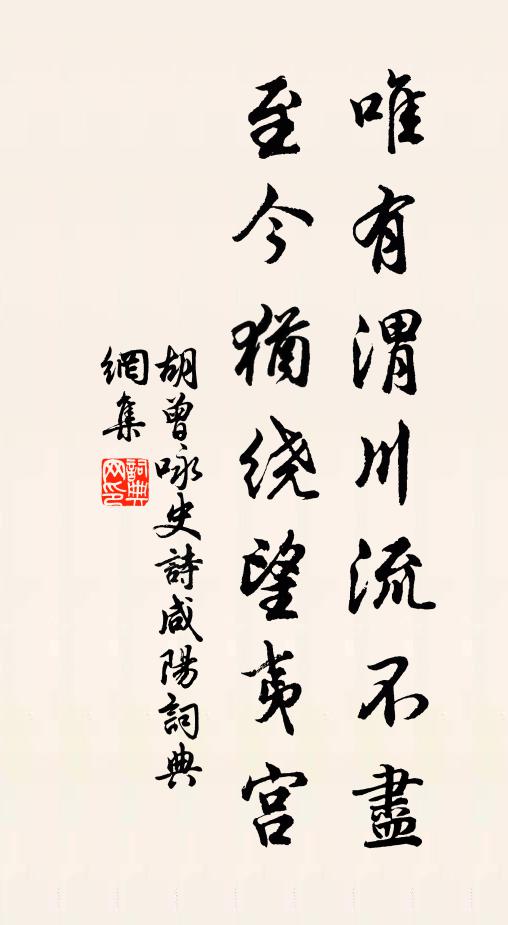 唯有渭川流不盡
至今猶绕望夷宫
胡曾咏史詩咸陽詞典
網集
詞典
网印